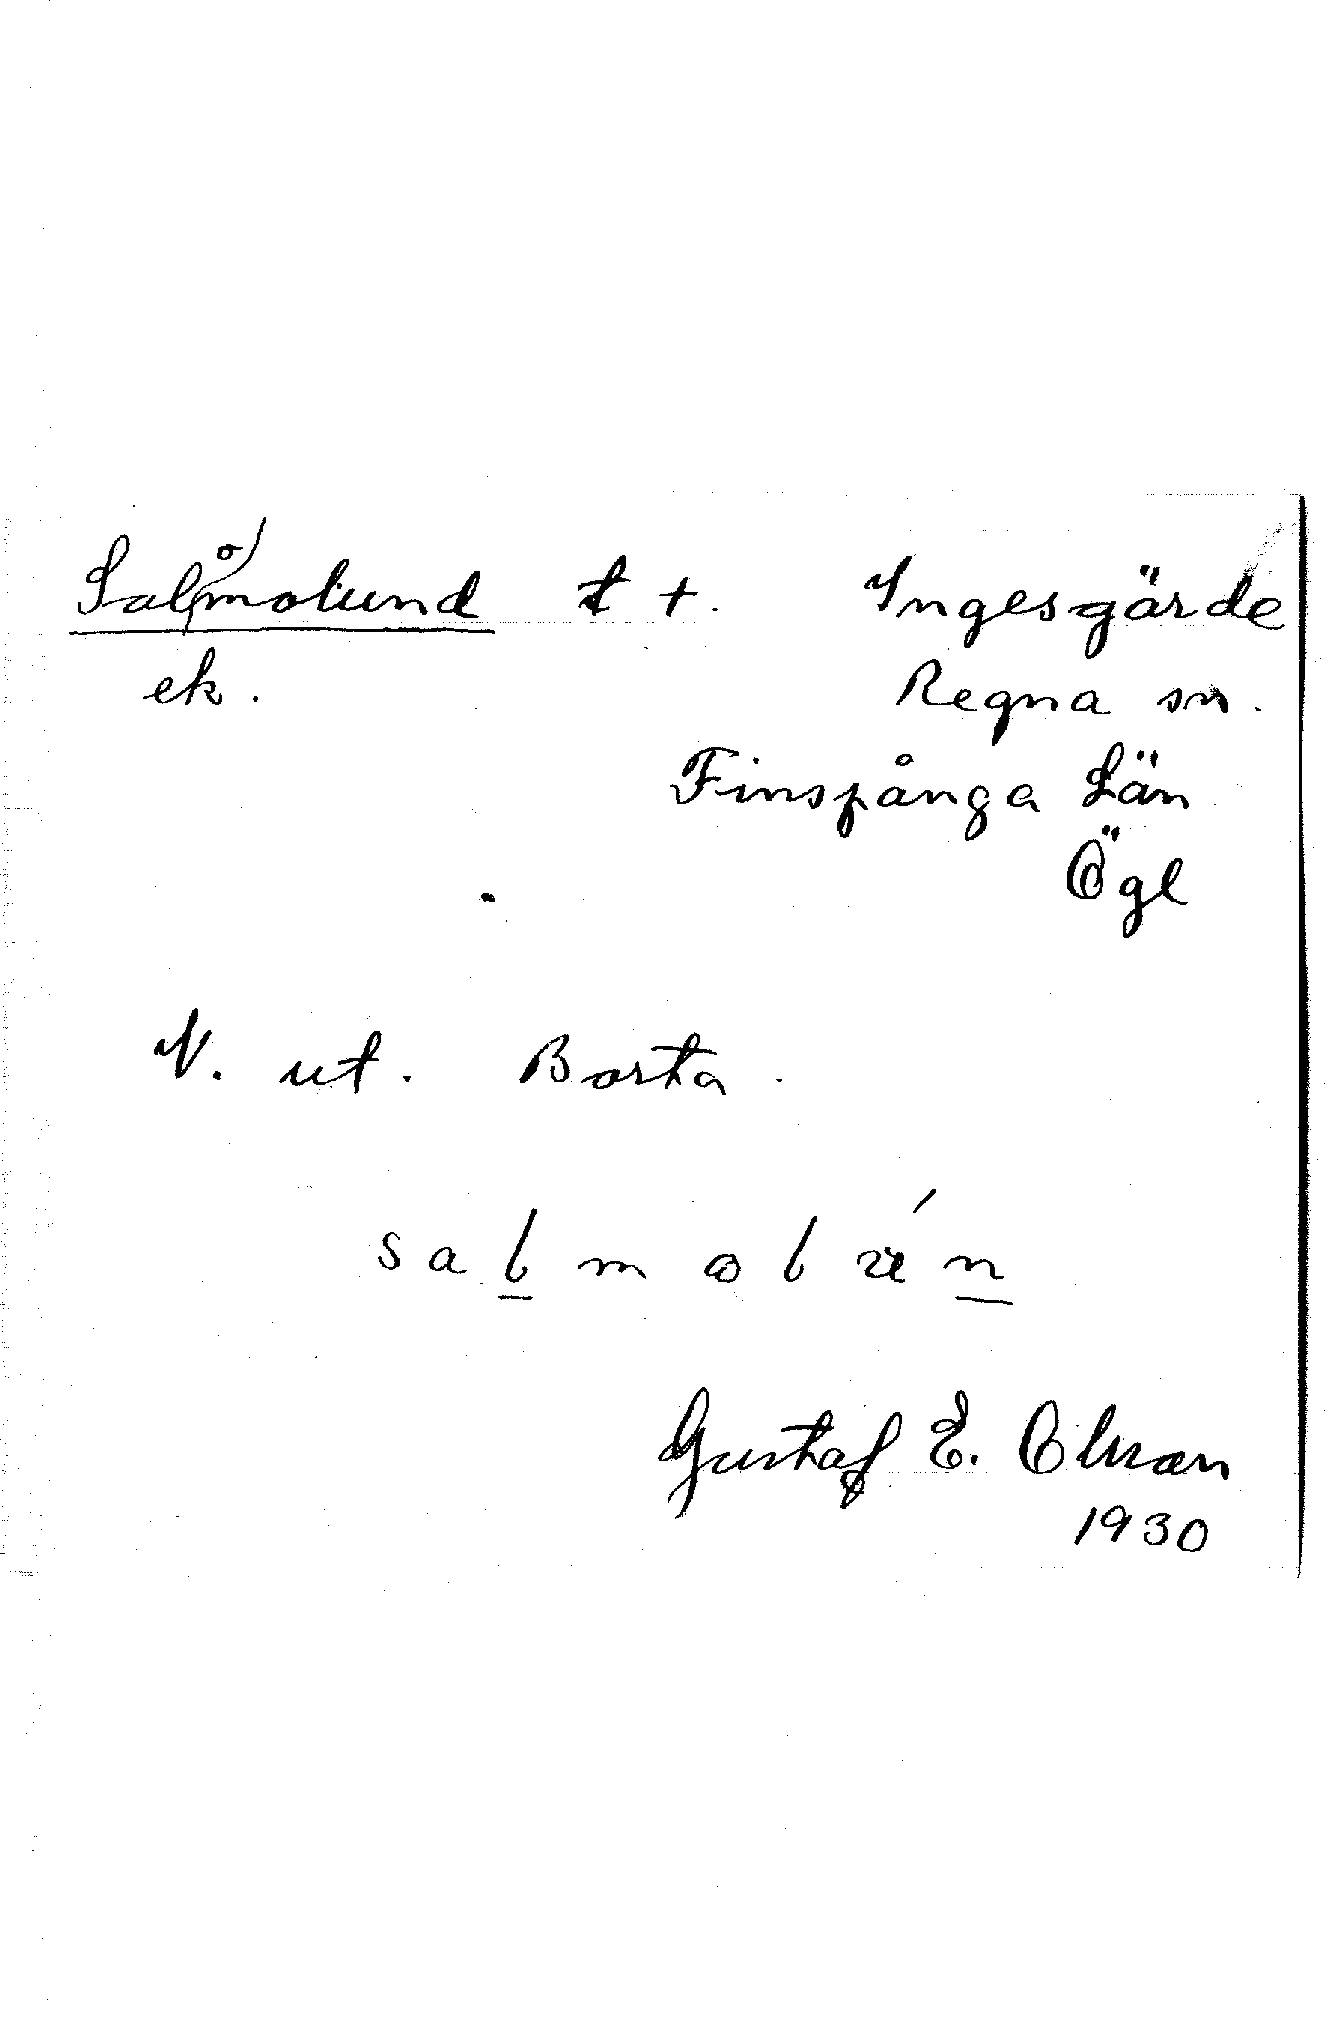 Salomolund t +. Ingesgärde
ek. Regna sn.
Finspånga Län
Ögl
N. ut. Borta.
salmolún
Gustaf E. Olsson
1930